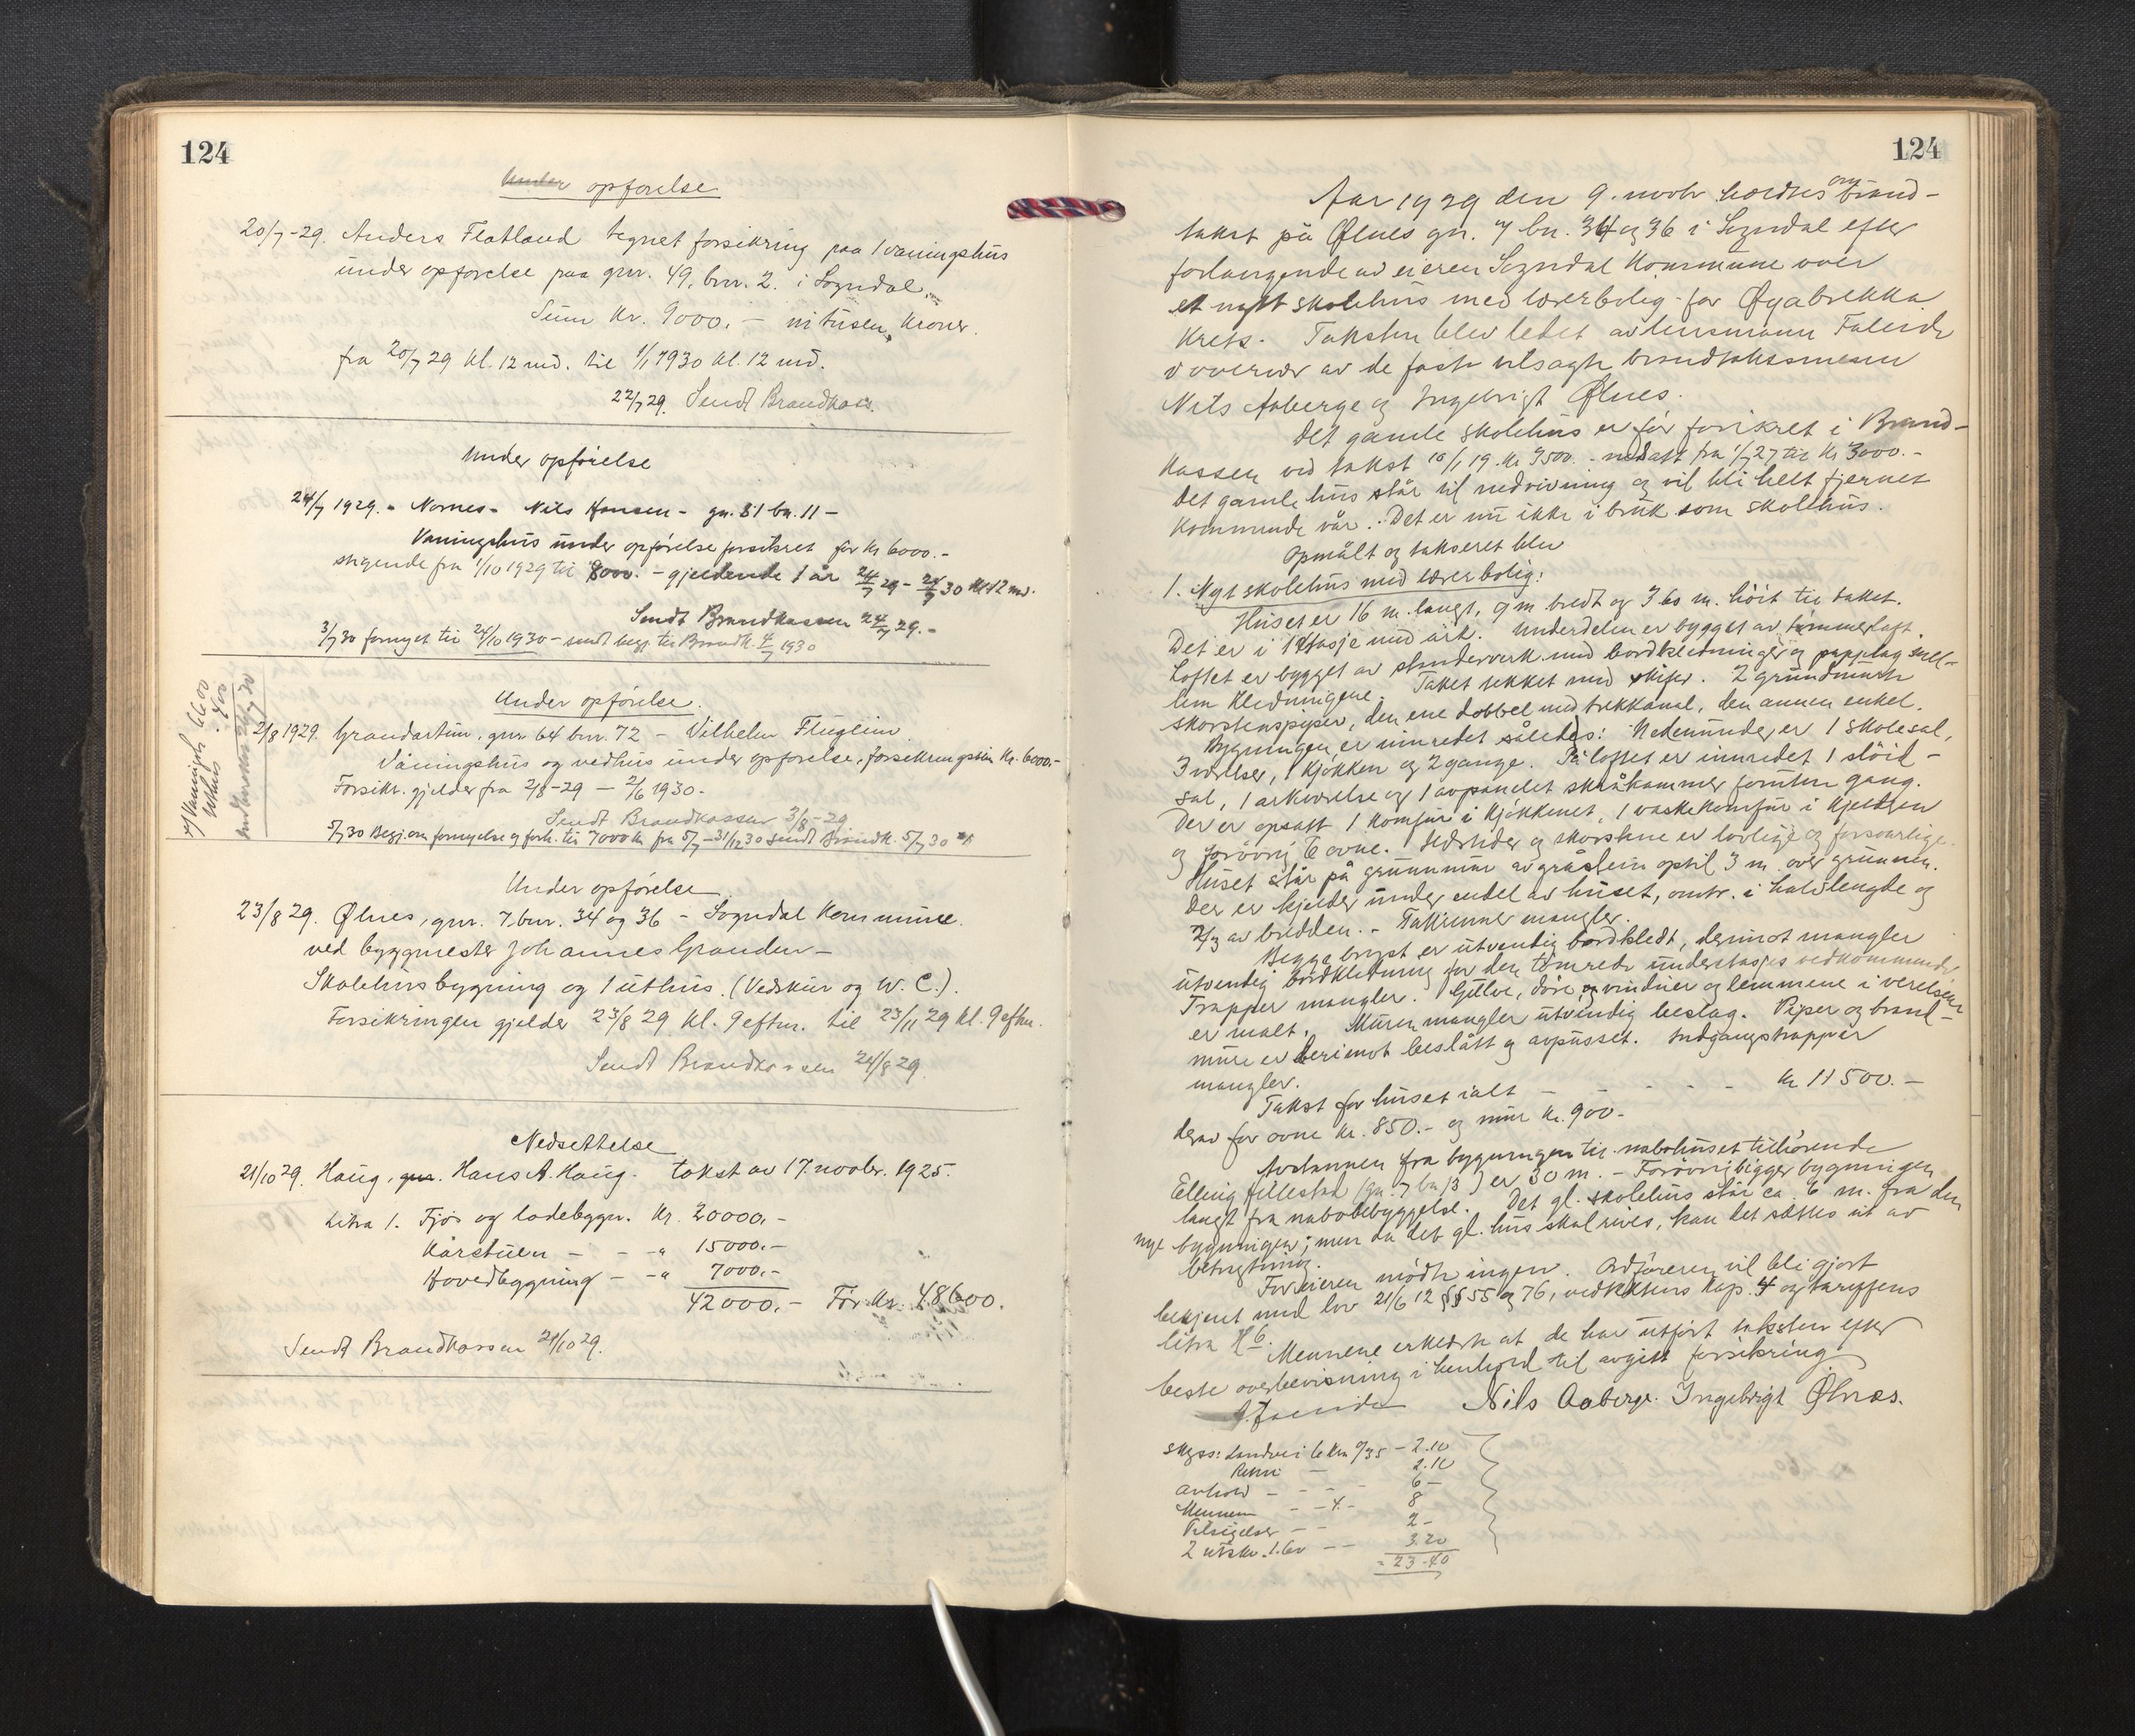 124
Under opførelse
20/7-29. Anders Flatland tegnet forsikring paa 1 vaaningshus
under opførelse paa gnr. 49, bnr. 2. i Sogndal.
Sum Kr. 9000.- nitusen Kroner.
fra 20/7 29 kl. 12 md. til 1/1 1930 kl. 12 md.
22/7 29. Sendt Brandkass.
Under opførelse
24/7 1929. - Nornes - Nils Hansen - gn. 31 bn. 11 -
Vaningshus under opførelse forsikret for Kr 6000.-
stigende fra 1/10 1929 til 8000. - gjeldende 1 år 24/7 29 - 24/7 30 kl 12 md.
Sendt Brandkassen 24/7 29.-
3/7 30 fornyet til 24/10 1930 - sendt begj. til Brandk. 4/7 1930
Under opførelse.
2/8 1929. Grandartun, gnr 64 bnr. 72 - Vilhelm Fluglein
Våningshus og vedhus under opførelse, forsikringssum Kr. 6000.-
Forsikr. gjelder fra 2/8-29 - 2/6 1930.-
Sendt Brandkassen 3/8-29
5/7 30 Begj. om fornyelse og forh. til 7000 kr fra 5/7 - 31/12 30 sendt Brandk. 5/7 30
Vaaningsh 6600
uthus 400
Under opførelse
23/8 29. Ølnes, gnr. 7, bnr. 34 og 36 - Sogndal Kommune.
ved byggmester Johannes Granden -
Skolehusbygning og 1 uthus. (Vedskur og W. C.).
Forsikringen gjelder 23/8 29 kl. 9 eftm. til 23/11 29 kl. 9 eftm.
Sendt Brandkassen 24/8 29.
Nedsettelse
21/10 29. Haug, gnr. Hans A. Haug. takst av 17. novbr. 1925.
Litra 1. Fjøs og ladebygn. Kr. 20000.-
Kårstuen - - -" 15000.-
Hovedbygning - -" 7000.-
42000.- Før Kr. 48600.
Sendt Brandkassen 21/10 29.
124
Aar 1929 den 9. novbr holdtes om brand-
takst på Ølnes gn. 7 bn. 34 og 36 i Sogndal efter
forlangende av eieren Sogndal Kommune over
et nytt skolehus med lærerbolig for Øyabrekka
Krets. Taksten blev ledet av lensmann Faleide
i overvær av de faste tilsagte brandtakstmenn
Nils Aaberge og Ingebrigt Ølnes.
Det gamle skolehus er før forsikret i Brand-
kassen ved takst 10/1 19. Kr 9500.- nedsatt fra 1/7 27 til Kr 3000.-
Det gamle hus står til nedrivning og vil bli helt fjernet
kommende vår. Det er nu ikke i bruk som skolehus.
Opmålt og taksert blev
1. Nyt skolehus med lærerbolig:
Huset er 16 m. langt, 9 m bredt og 3.60 m. höit til taket.
Det er i 1 etasje med ark. Underdelen er bygget av tømmer, loft.
Loftet er bygget av stenderverk med bordkledninger og papplag mel-
lem kledningene. Taket tekket med skifer. 2 grundmurte
skorstenspiper, den ene dobbel med trekkanal, den annen enkel.
Bygningen er innredet således: Nedenunder er 1 skolesal,
3 værelser, 1 kjøkken og 2 gange. På loftet er innredet 1 slöid-
sal, 1 arkværelse og 1 avpanelet skråkammer foruten gang.
Der er opsatt 1 komfur i kjökkenet, 1 vaskekomfur i kjelleren
og forövrig 6 ovne. Ildsteder og skorstene er lovlige og forsvarlige.
Huset står på grunnmur av gråstein optil 3 m. over grunnen.
Der er kjelder under endel av huset, omtr. i halvlengde og
2/3 av bredden. - Takrenner mangler.
Begge bryst er utvendig bordkledt, derimot mangler
utvendig bordkledning for den tömrede underetasjes vedkommende
Trapper mangler. Gulve, döre og vinduer og lemmene i verelsene
er malt. Muren mangler utvendig beslag. Piper og brand-
mure er derimot beslått og avpusset. Indgangstrapper
mangler.
Takst for huset ialt - - - - - Kr 11500.-
derav for ovne Kr. 850.- og mur Kr. 900.-
Avstannen fra bygningen til nabohuset tilhörende
Elling Fillestad (gn. 7 bn 13) er 30 m. - Forövrig ligger bygningen
langt fra nabobebyggelse. Det gl. skolehus står ca. 6 m. fra den
nye bygningen; men da det gl. hus skal rives, kan det sættes ut av
betragtning.
For eieren mødte ingen. Ordföreren vil bli gjort
bekjent med lov 21/6 12 §§ 55 og 76, vedtektens Kap. 4 og tariffens
litra H 6.
Mennene erklærte at de har utført taksten efter
beste overbevisning i henhold til avgitt forsikring
A. Faleide Nils Aaberge. Ingebrigt Ølnæs.
Skyss: Landvei 6 km 0/35 - 2.10
Retur - 2.10
Avhold - - - 6-
Mennene - - 4. - 8
Tilsigelser - - 2-
2 utskr. 1.60 - - 3.20
= 23.40